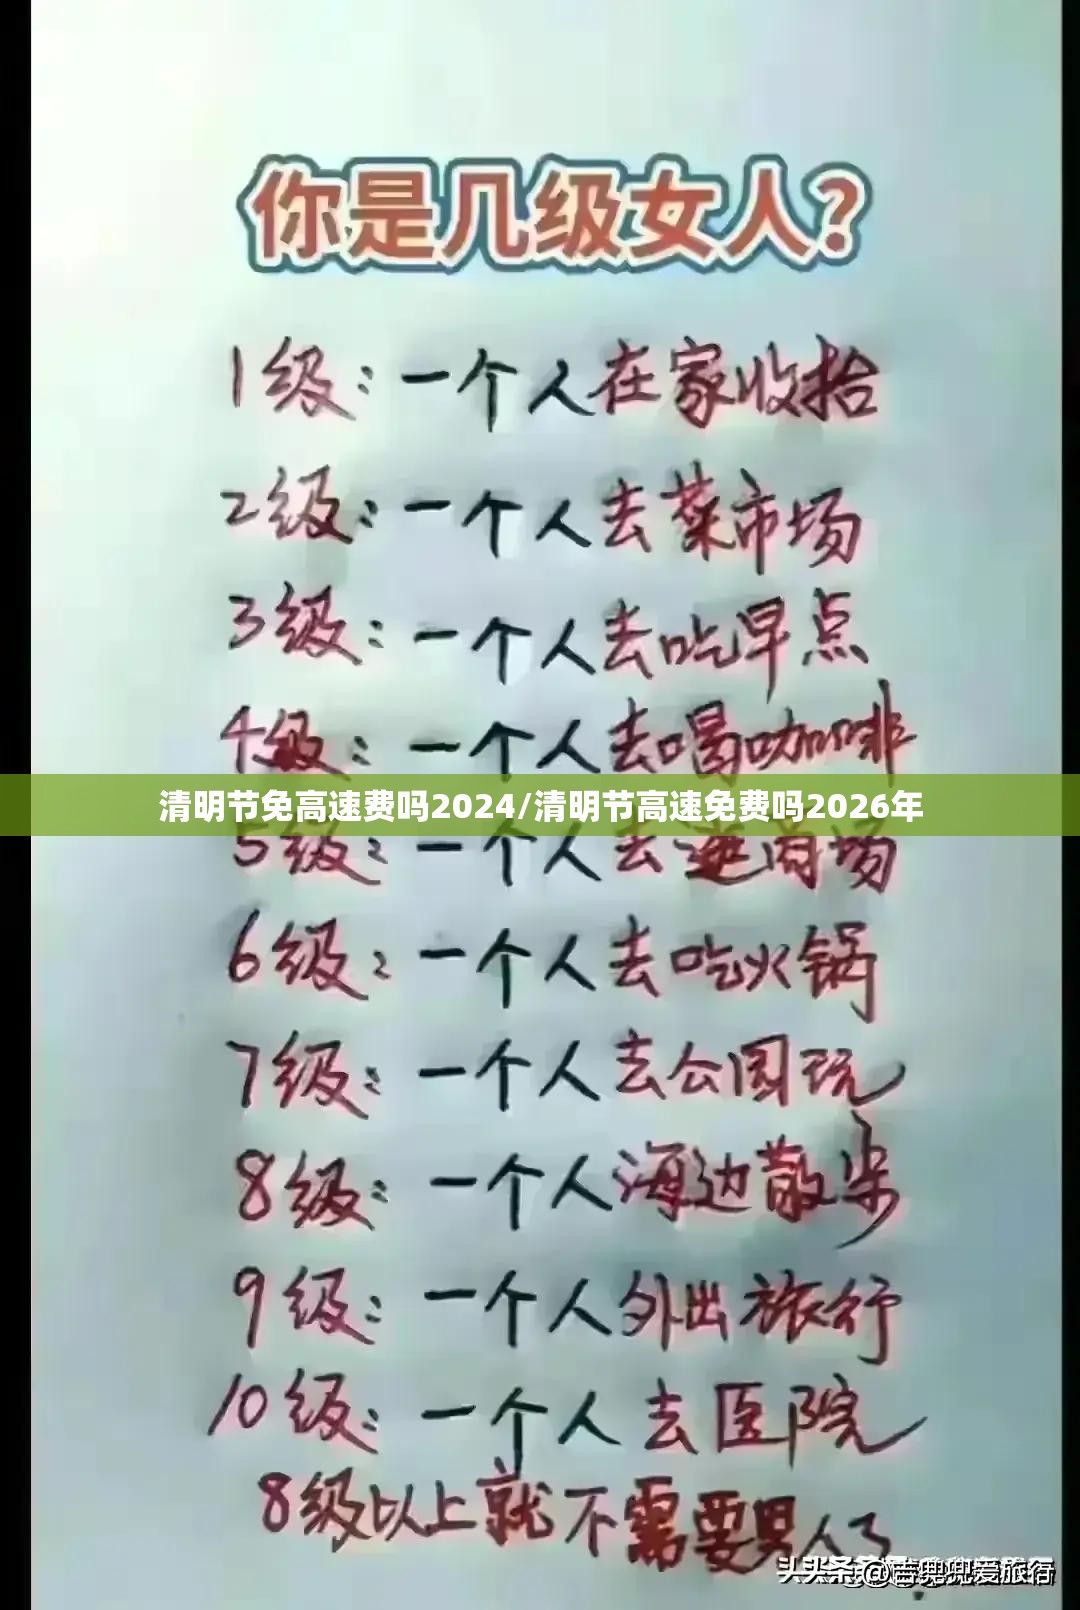 你是几级女人?
1级:一个人在家收拾
2级:一个人去菜市场
3级:一个人去吃早点
4级:一个人去喝咖啡
清明节免高速费吗2024/清明节高速免费吗2026年
5级:一个人去逛商场
6级:一个人去吃火锅
7级:一个人去公园玩
8级:一个人海边散步
9级:一个人外出旅行
10级:一个人去医院
8级以上就不需要男人了
头条 @吉兜兜爱旅行